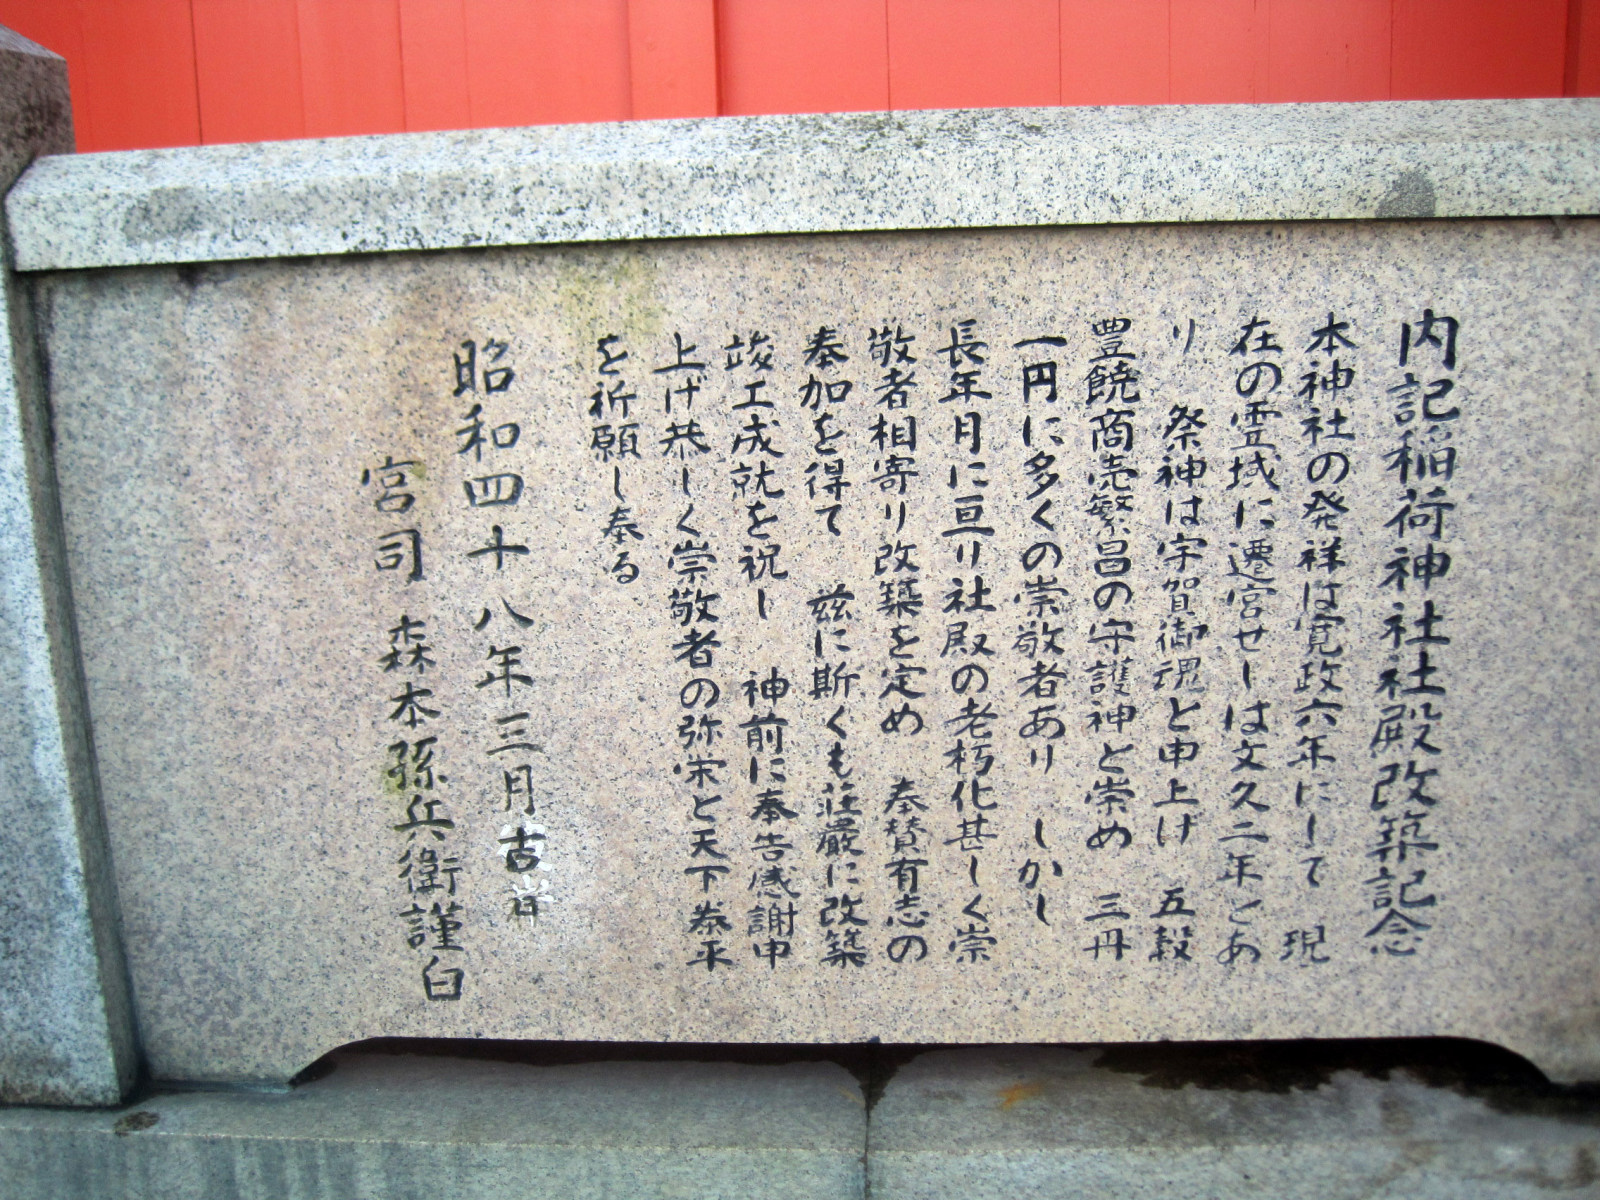 内記稲荷神社社殿改築記念
本神社の発祥は寛政六年にして 現
在の霊域に遷宮せしは文久二年とあ
り 祭神は宇賀御魂と申上げ 五穀
豊饒商売繁昌の守護神と崇め 三丹
一円に多くの崇敬者あり しかし
長年月に亘り社殿の老朽化甚しく崇
敬者相寄り改築を定め 奉賛有志の
奉加を得て 茲に斯くも荘厳に改築
竣工成就を祝し 神前に奉告感謝申
上げ恭しく崇敬者の弥栄と天下泰平
を祈願し奉る
昭和四十八年三月吉祥
宮司 森本孫兵衛謹白